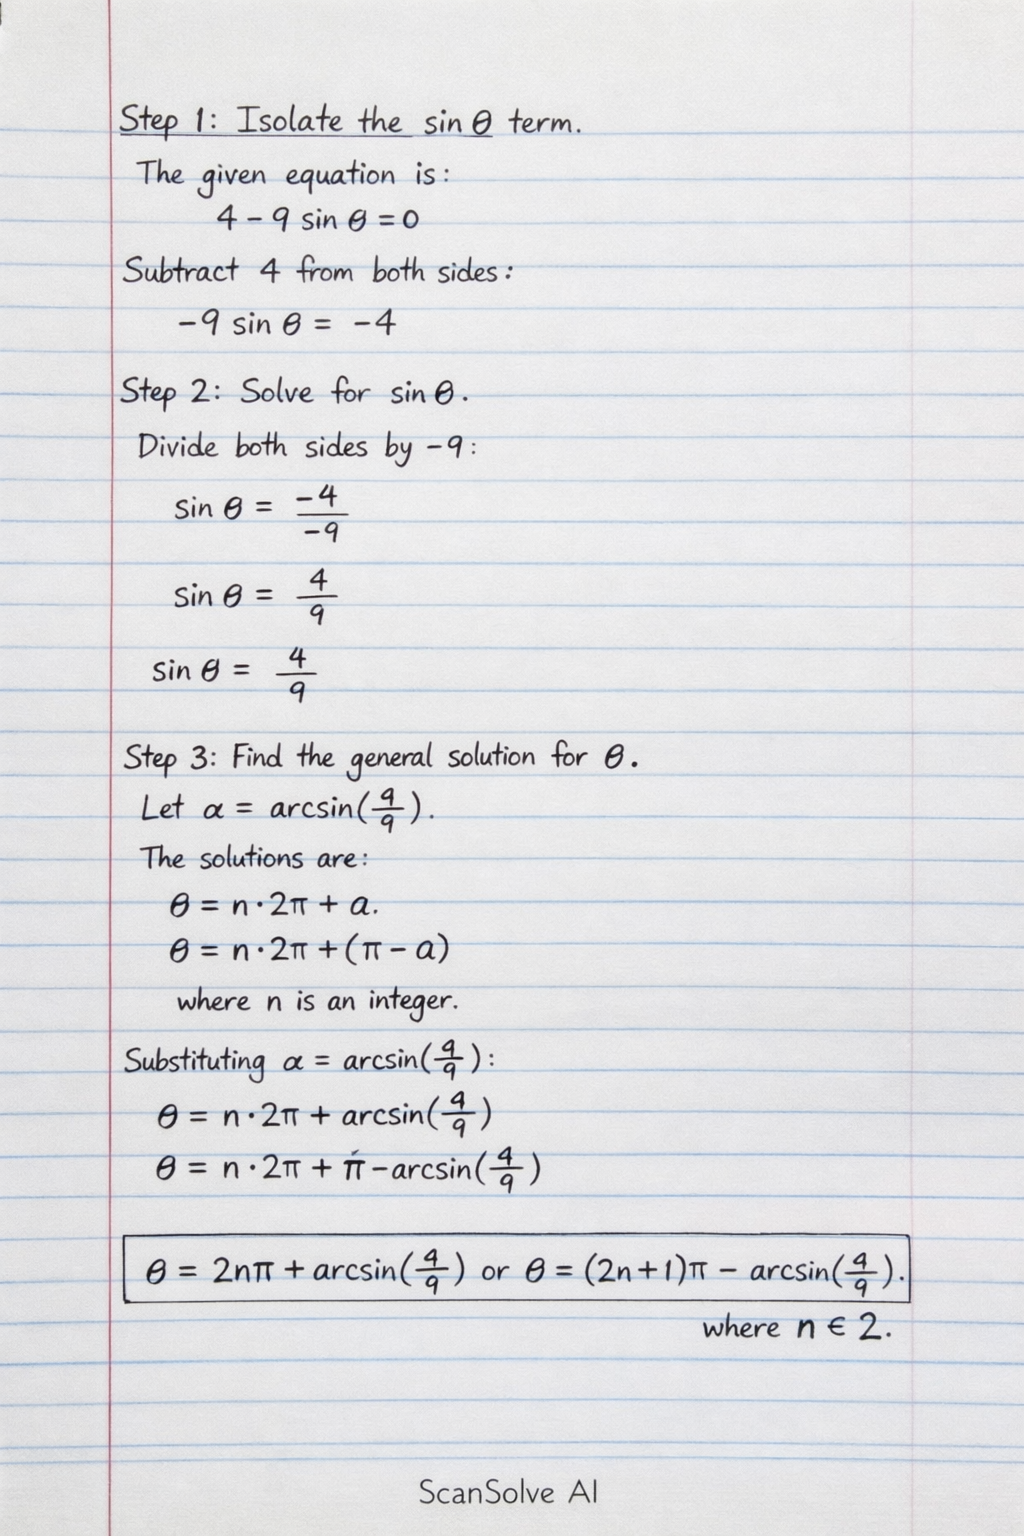 Step 1: Isolate the sin θ term.
The given equation is:
4 - 9 sin θ = 0
Subtract 4 from both sides:
-9 sin θ = -4
Step 2: Solve for sin θ.
Divide both sides by -9:
sin θ = -4/-9
sin θ = 4/9
sin θ = 4/9
Step 3: Find the general solution for θ.
Let α = arcsin(9/9).
The solutions are:
θ = n·2π + a.
θ = n·2π + (π - a)
where n is an integer.
Substituting α = arcsin(4/9):
θ = n·2π + arcsin(4/9)
θ = n·2π + π - arcsin(4/9)
θ = 2nπ + arcsin(4/9) or θ = (2n+1)π - arcsin(4/9).
where n ∈ 2.
ScanSolve AI